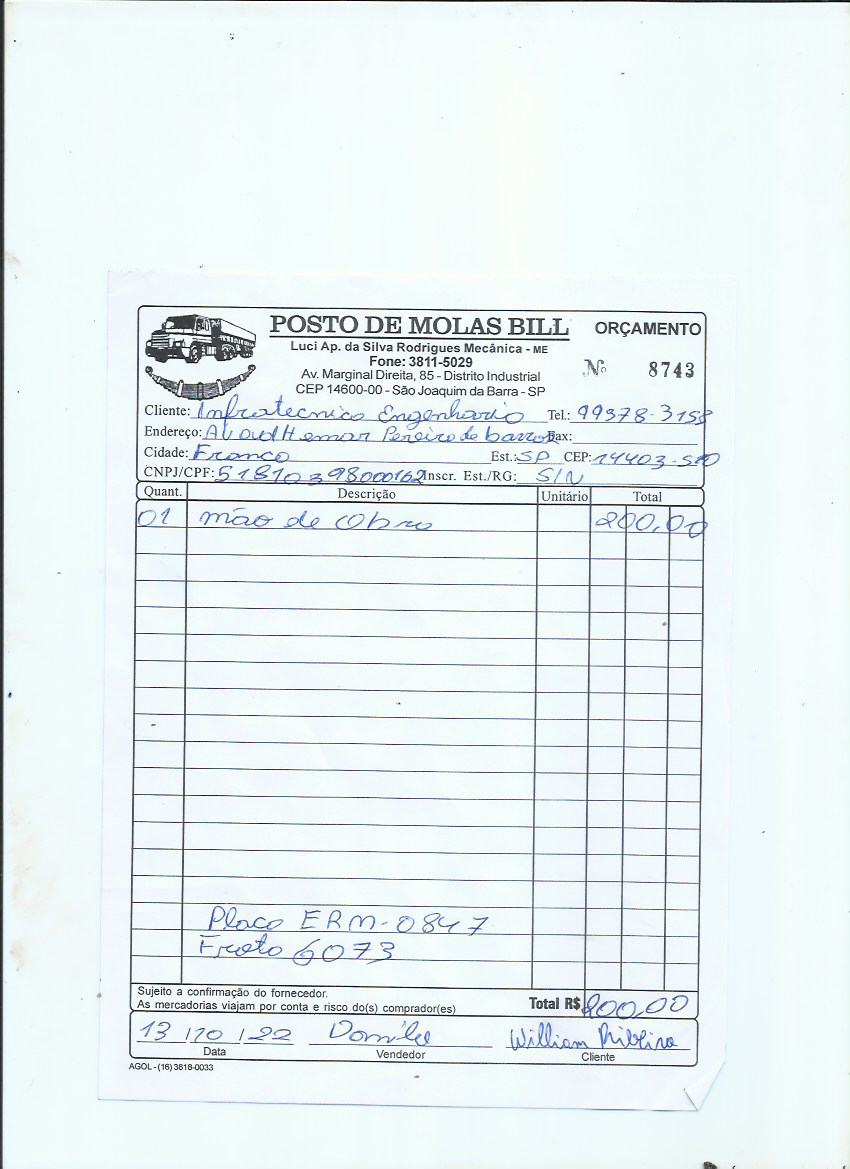 POSTO DE MOLAS BILL
ORÇAMENTO
Luci Ap. da Silva Rodrigues Mecânica - ME
Fone: 3811-5029
Nº 8743
Av. Marginal Direita, 85 - Distrito Industrial
CEP 14600-00 - São Joaquim da Barra - SP
Cliente: Infratecnica Engenharia Tel.: 99378-3158
Endereço: Hemar Pereira de barros Fax:
Cidade: Franca Est.: SP CEP: 14403-510
CNPJ/CPF: 51810398000162 Inscr. Est./RG: S/N
Quant. Descrição Unitário Total
01 mão de Obra 200,00
Placa ERM-0847
Frota 6073
Sujeito a confirmação do fornecedor.
As mercadorias viajam por conta e risco do(s) comprador(es)
Total R$ 200,00
13 / 10 / 22 William Ribeiro
Data Vendedor Cliente
AGOL - (16) 3818-0033